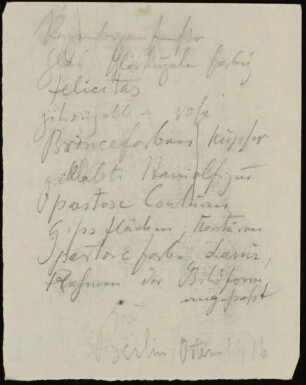 Regenbogenfenster
Glas Glaskugeln farbig
felicitas
zitrongelb – rosa
Broncefarben Kupfer
geklebte Staniolfigur
pastose Conturen
Gipsflächen, Konturen
pastose Farbe Lasur,
Rahmen der Bildform
angepaßt
Berlin, Ostern 1916